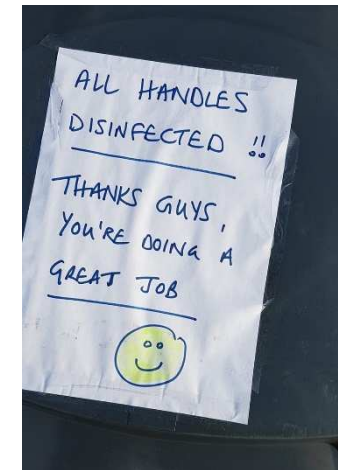 ALL HANDLES
DISINFECTED !!
THANKS GUYS,
YOU'RE DOING A
GREAT JOB